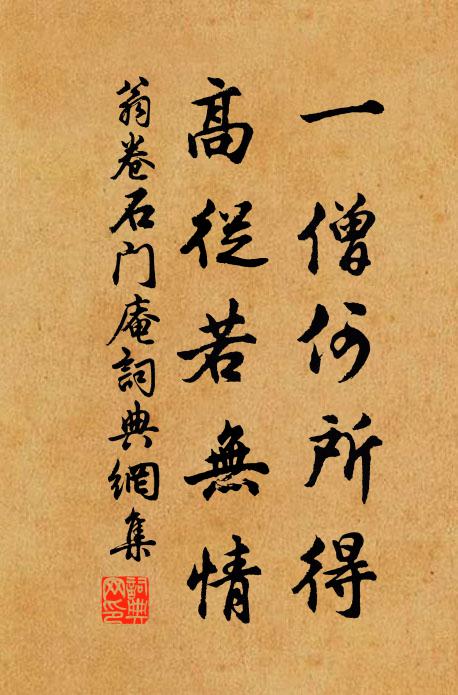 一僧何所得
高從若無情
翁卷石门庵詞典網集
詞典网印